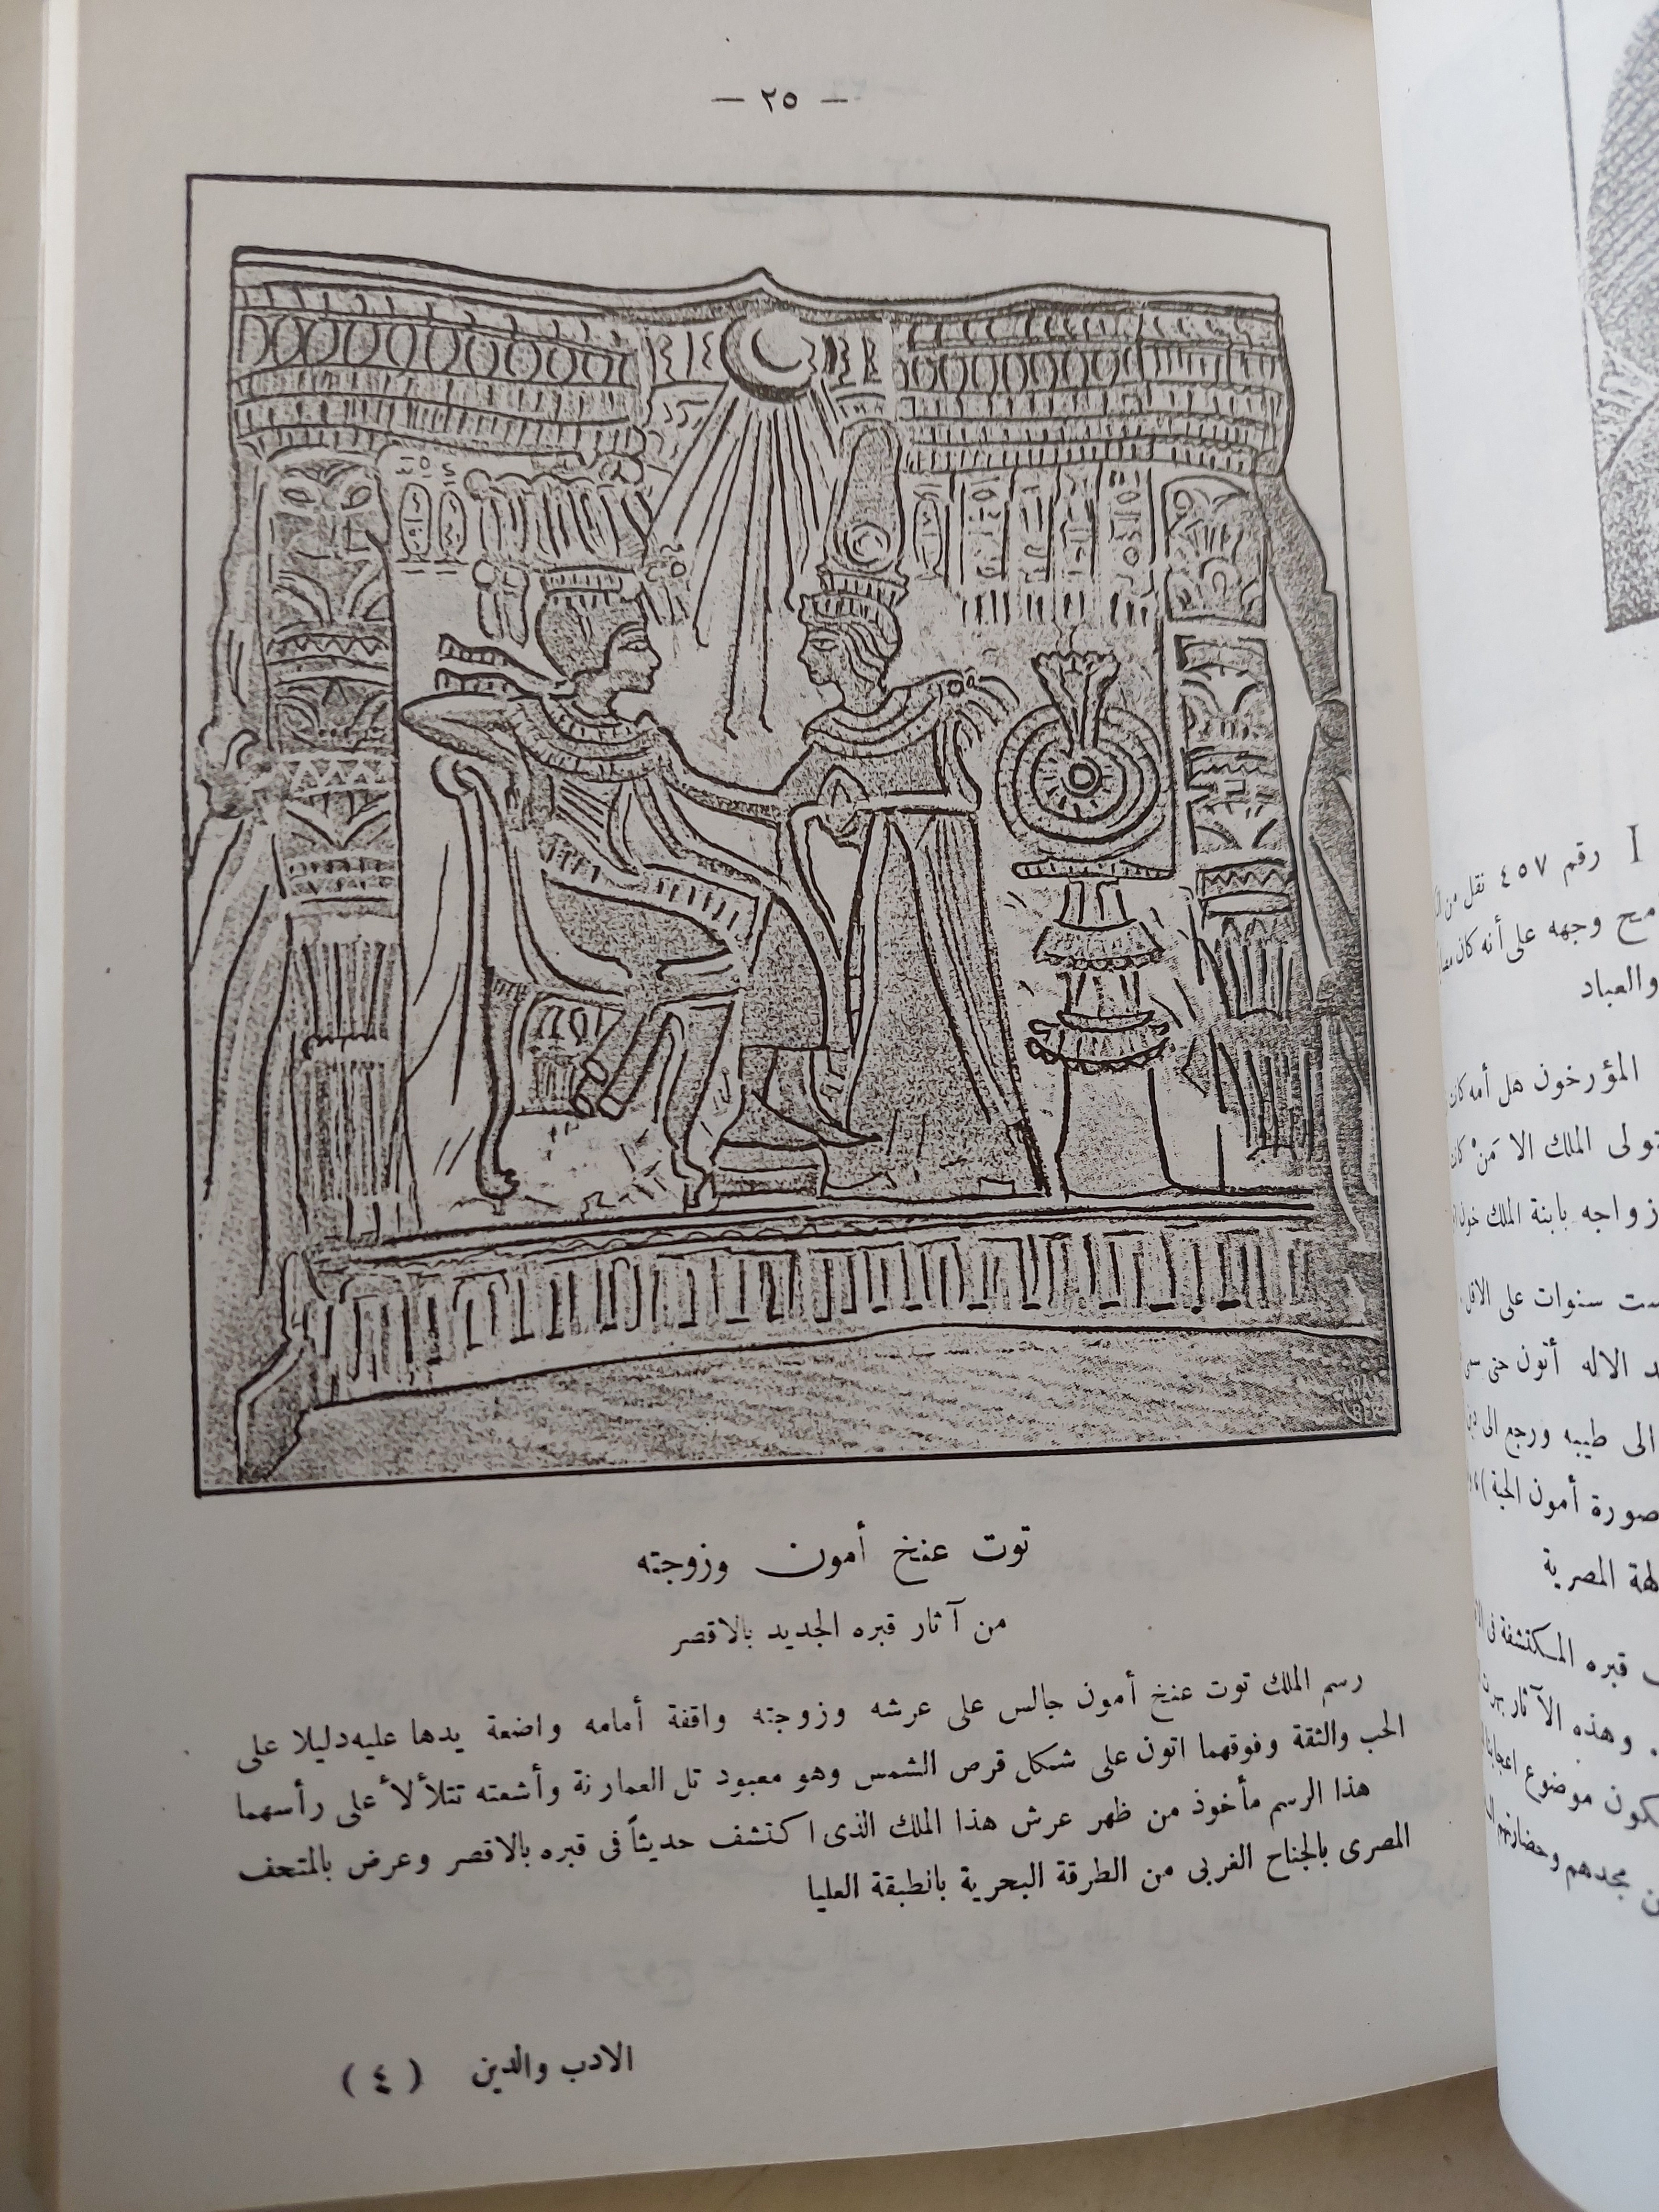 — ٢٥ —
توت عنخ أمون وزوجته
من آثار قبره الجديد بالاقصر
رسم الملك توت عنخ أمون جالس على عرشه وزوجته واقفة أمامه واضعة يدها عليه دليلا على
الحب والثقة وفوقهما اتون على شكل قرص الشمس وهو معبود تل العمارنة وأشعته تتلألأ على رأسهما
هذا الرسم مأخوذ من ظهر عرش هذا الملك الذى اكتشف حديثاً فى قبره بالاقصر وعرض بالمتحف
المصرى بالجناح الغربى من الطرقة البحرية بانطبقة العليا
الادب والدين (٤)
I رقم ٤٥٧ نقل من
وجهه على أنه كان
والعباد
المؤرخون هل أمه كان
تولى الملك الا مَنْ كان
زواجه بابنة الملك
ست سنوات على الاقل
الاله أتون حتى
الى طيبه ورجع الى
صورة أمون الحية)
المصرية
قبره المكتشفة فى
وهذه الآثار
موضوع
مجدهم